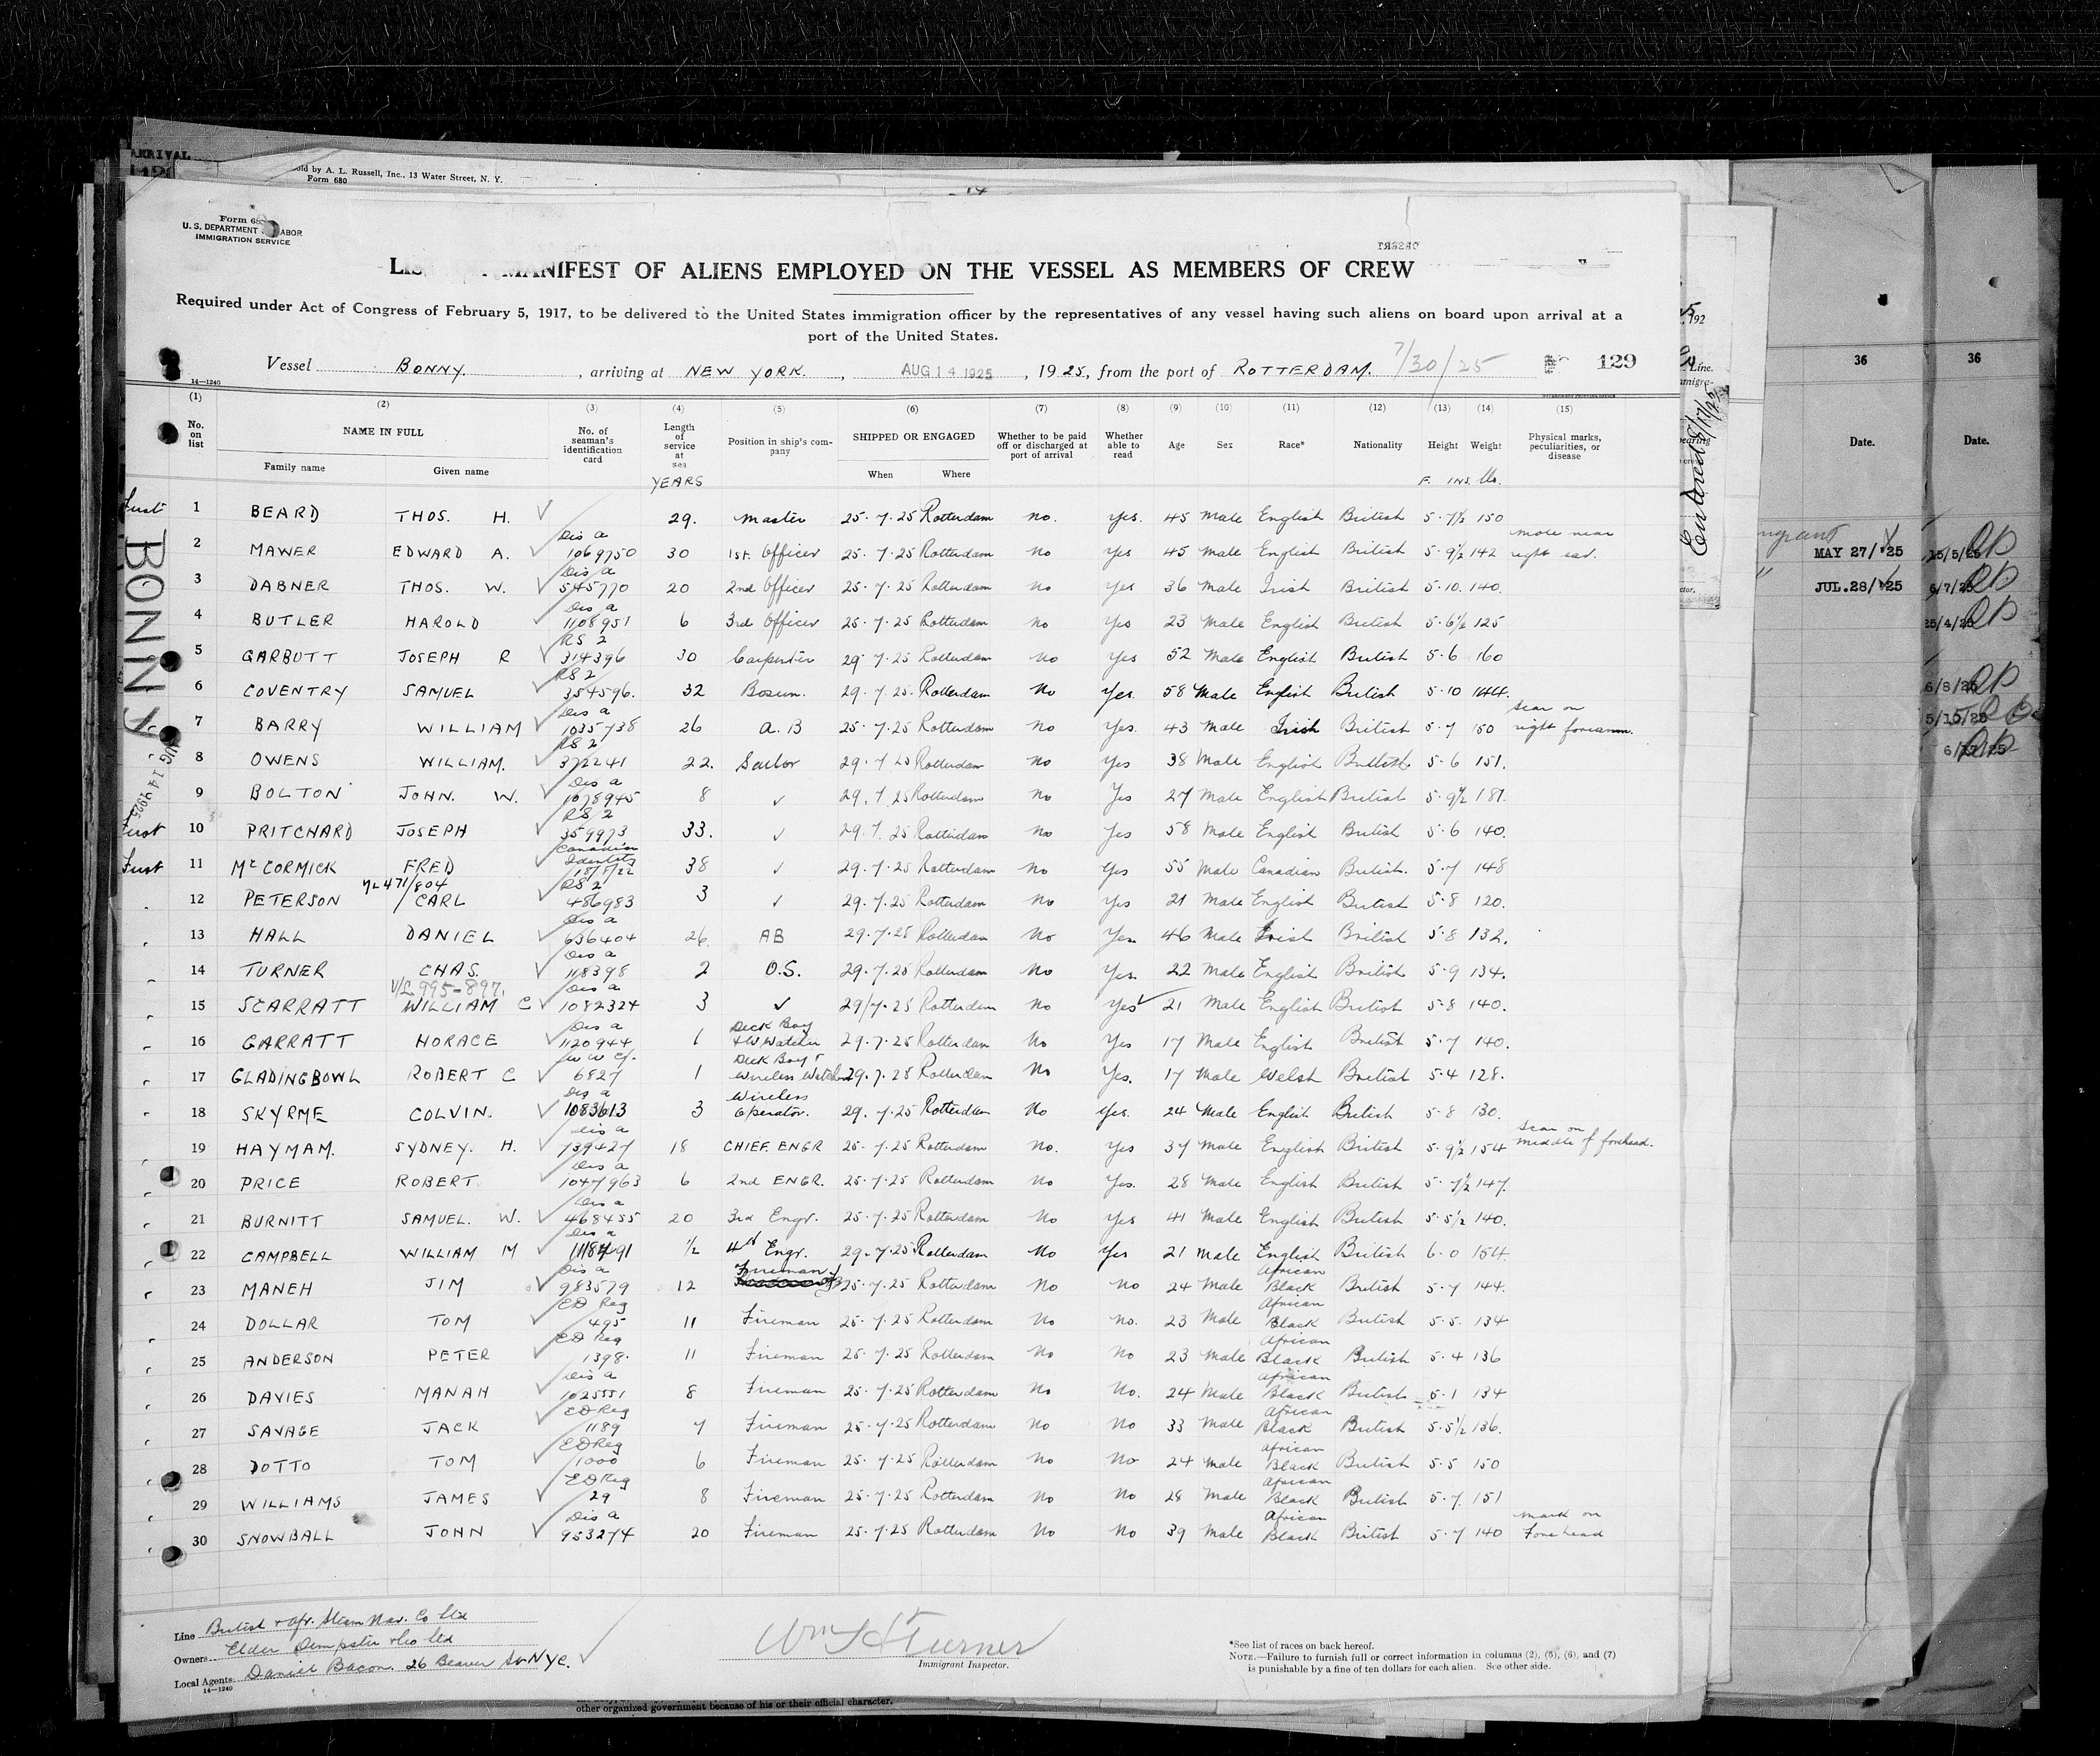 ARRIVAL
Sold by A. L. Russell, Inc., 13 Water Street, N. Y.
Form 680
U. S. DEPARTMENT LABOR
IMMIGRATION SERVICE
MANIFEST OF ALIENS EMPLOYED ON THE VESSEL AS MEMBERS OF CREW
Required under Act of Congress of February 5, 1917, to be delivered to the United States immigration officer by the representatives of any vessel having such aliens on board upon arrival at a
port of the United States.
Vessel BONNY. , arriving at NEW YORK. , AUG 14 1925 , 1925, from the port of ROTTERDAM. 7/30/25 129
14—1240
(1) (2) (3) (4) (5) (6) (7) (8) (9) (10) (11) (12) (13) (14) (15)
No. on list NAME IN FULL Family name Given name No. of seaman's identification card Length of service at sea YEARS Position in ship's company SHIPPED OR ENGAGED When Where Whether to be paid off or discharged at port of arrival Whether able to read Age Sex Race* Nationality Height F. INS. Weight lbs. Physical marks, peculiarities, or disease
First 1 BEARD THOS. H. 29. Master 25.7.25 Rotterdam no. yes. 45 Male English British 5-7½ 150
2 MAWER EDWARD A. Dis a 1069750 30 1st. Officer 25.7.25 Rotterdam no yes 45 Male English British 5-9½ 142 mole near right ear.
3 DABNER THOS. W. Dis a 545770 20 2nd Officer 25.7.25 Rotterdam no yes 36 Male Irish British 5-10. 140.
4 BUTLER HAROLD Dis a 1108951 6 3rd Officer 25.7.25 Rotterdam no yes 23 Male English British 5-6½ 125
5 GARBUTT JOSEPH R RS 2 314396 30 Carpenter 29.7.25 Rotterdam no yes 52 Male English British 5-6 160
6 COVENTRY SAMUEL RS 2 354596. 32 Bosun. 29.7.25 Rotterdam No yes. 58 Male English British 5-10 144.
7 BARRY WILLIAM Dis a 1035738 26 A.B 25.7.25 Rotterdam no yes. 43 Male Irish British 5-7 150 scar on right forearm.
8 OWENS WILLIAM. RS 2 372241 22. Sailor 29.7.25 Rotterdam no yes 38 Male English British 5-6 151.
9 BOLTON JOHN. W. Dis a 1078945 8 ✓ 29.7.25 Rotterdam no yes 27 Male English British 5-9½ 181.
First 10 PRITCHARD JOSEPH RS 2 359973 33. ✓ 29.7.25 Rotterdam no yes 58 Male English British 5-6 140.
First 11 McCORMICK FRED Canadian Identity 18/8/22 38 ✓ 29.7.25 Rotterdam no yes 55 Male Canadian British. 5-7 148
12 PETERSON 471/804 CARL RS 2 486983 3 ✓ 29.7.25 Rotterdam no yes 21 Male English British 5-8 120.
13 HALL DANIEL Dis a 636404 26 AB 29.7.25 Rotterdam no yes 46 Male Irish British 5-8 132.
14 TURNER CHAS. Dis a 118398 2 O.S. 29.7.25 Rotterdam no yes. 22 Male English British 5-9 134.
15 SCARRATT 995-897. WILLIAM C Dis a 1082324 3 ✓ 29/7.25 Rotterdam no yes 21 Male English British 5-8 140.
16 GARRATT HORACE Dis a 1120944 1 Deck Boy & W Watcher 29.7.25 Rotterdam no yes 17 Male English British 5-7 140.
17 GLADINGBOWL ROBERT C 6827 1 Deck Boy & Wireless Watcher 29.7.25 Rotterdam no yes. 17 Male Welsh British 5-4 128.
18 SKYRME COLVIN. Dis a 1083613 3 Wireless Operator. 29.7.25 Rotterdam no yes. 24 Male English British 5-8 130.
19 HAYMAM. SYDNEY. H. Dis a 739427 18 CHIEF. ENGR 25.7.25 Rotterdam no. yes 37 Male English British 5-9½ 154 scar on middle of forehead.
20 PRICE ROBERT. Dis a 1047963 6 2nd ENGR. 25.7.25 Rotterdam no yes. 28 Male English British 5-7½ 147.
21 BURNITT SAMUEL. W. Dis a 468455 20 3rd Engr. 25.7.25 Rotterdam no yes 41 Male English British 5-5½ 140.
22 CAMPBELL WILLIAM M Dis a ½ 4th Engr. 29.7.25 Rotterdam No yes 21 Male English British 6-0 154.
23 MANEH JIM Dis a 983579 12 Fireman 25.7.25 Rotterdam no no 24 Male African Black British 5-7 144.
24 DOLLAR TOM ED Reg 495 11 Fireman 25.7.25 Rotterdam no no. 23 Male African Black British 5-5. 134
25 ANDERSON PETER ED Reg 1398. 11 Fireman 25.7.25 Rotterdam no no 23 Male African Black British 5-4 136
26 DAVIES MANAH Dis a 1025551 8 Fireman 25.7.25 Rotterdam no no. 24 Male African Black British 5-1 134
27 SAVAGE JACK ED Reg 1189 7 Fireman 25.7.25 Rotterdam no no 33 Male African Black British 5-5½ 136.
28 DOTTO TOM ED Reg 1000 6 Fireman 25.7.25 Rotterdam no no 24 Male African Black British 5-5 150
29 WILLIAMS JAMES ED Reg 29 8 Fireman 25.7.25 Rotterdam no no 28 Male African Black British 5-7. 151
30 SNOWBALL JOHN Dis a 953274 20 Fireman 25.7.25 Rotterdam no no 39 Male African Black British 5-7 140 mark on Forehead
BONNY
AUG 14 1925
Line British & Afr. Steam Nav. Co Ltd
Owners Elder Dempster & Co Ltd
Local Agents Daniel Bacon. 26 Beaver St NYC.
14—1240
Wm H Turner
Immigrant Inspector.
*See list of races on back hereof.
NOTE.—Failure to furnish full or correct information in columns (2), (5), (6), and (7)
is punishable by a fine of ten dollars for each alien. See other side.
other organized government because of his or their official character.
192
Line.
Entered
36 36
Date. Date.
MAY 27/25
JUL.28/25